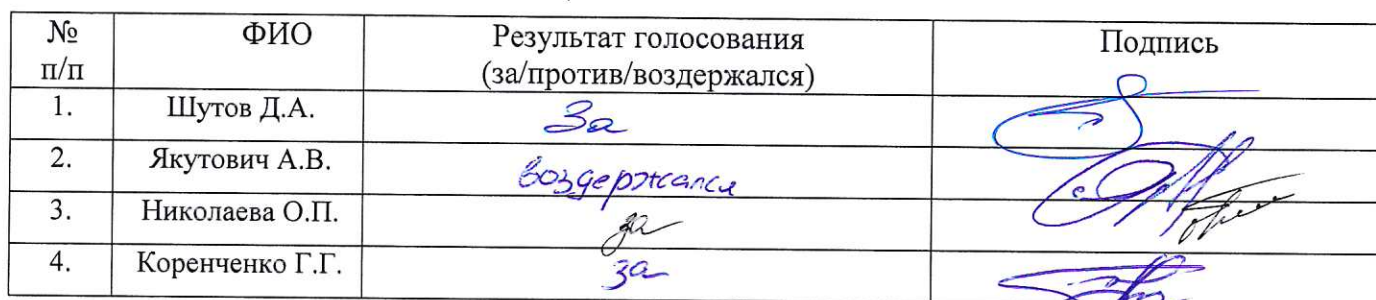 № п/п ФИО Результат голосования (за/против/воздержался) Подпись
1. Шутов Д.А. За
2. Якутович А.В. воздержался
3. Николаева О.П. за
4. Коренченко Г.Г. за